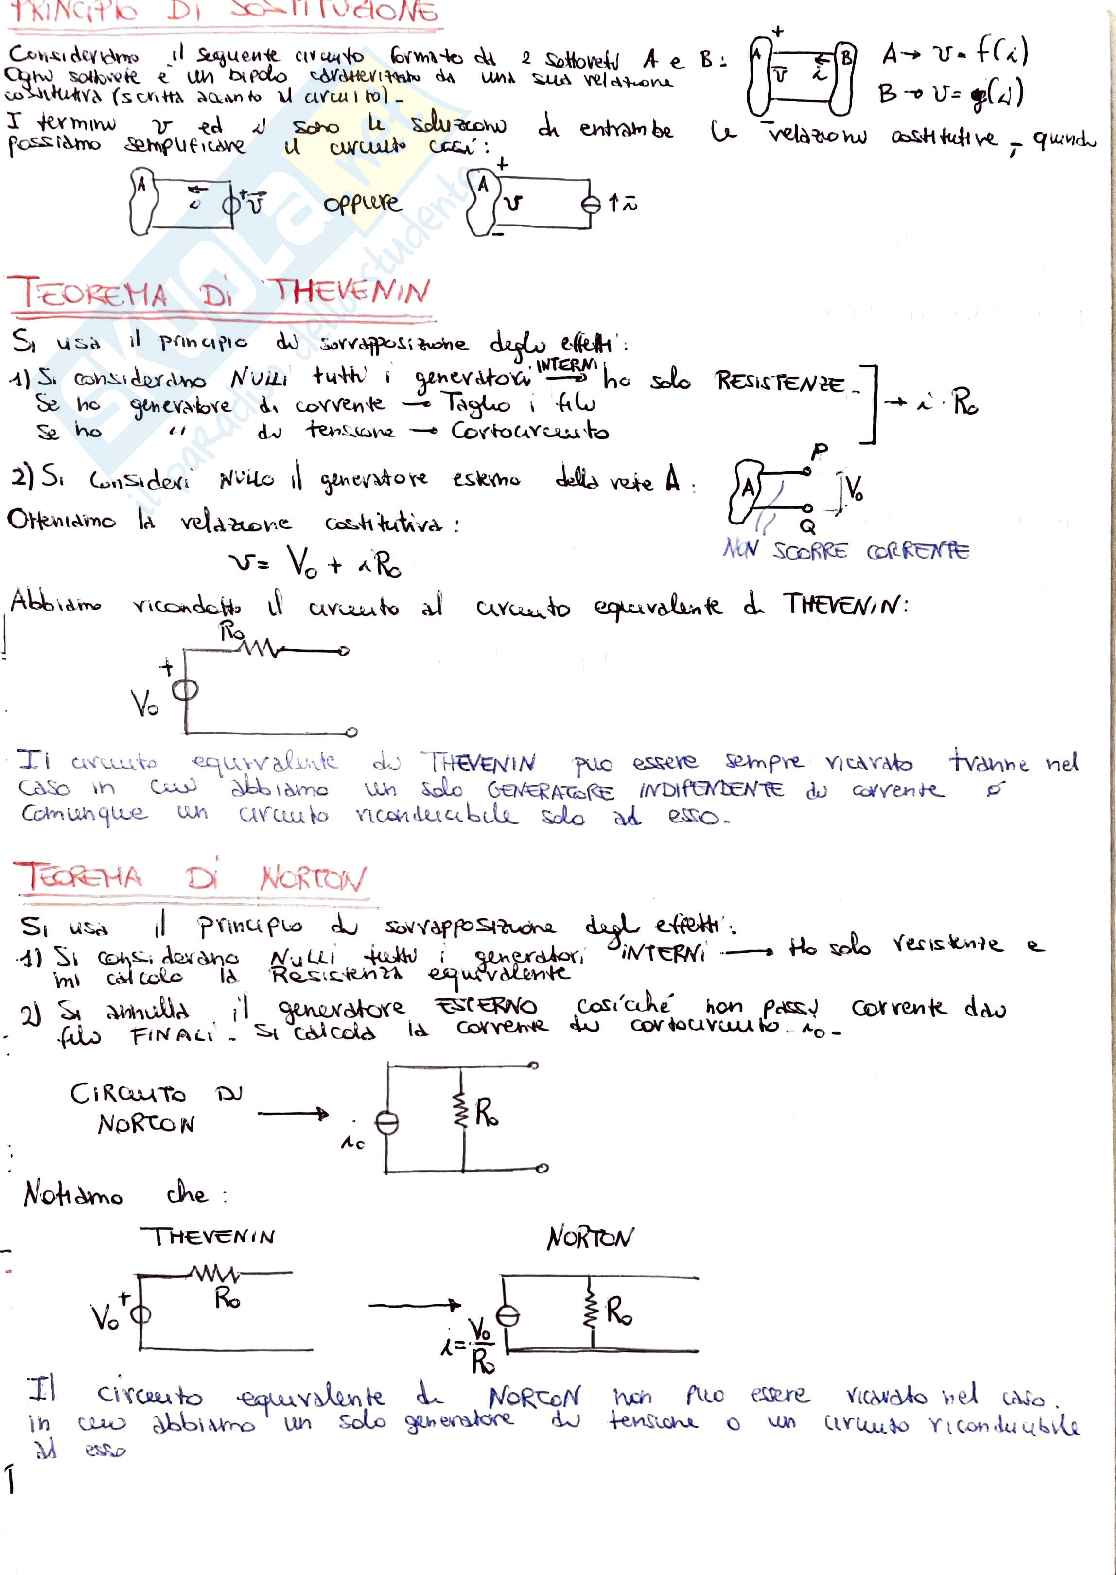 PRINCIPIO DI SOSTITUZIONE
Consideriamo il seguente circuito formato da 2 sottoreti A e B:
Ogni sottorete è un bipolo caratterizzato da una sua relazione
costitutiva (scritta accanto al circuito).
+
A
v
i
B
A → v = f(i)
B → v = g(i)
I termini v ed i sono le soluzioni di entrambe le relazioni costitutive, quindi
possiamo semplificare il circuito così:
A
i
+ v
oppure
A
+
v
-
↑ i
TEOREMA DI THEVENIN
Si usa il principio di sovrapposizione degli effetti:
1) Si considerano NULLI tutti i generatori INTERNI → ho solo RESISTENZE
Se ho generatore di corrente → Taglio i fili
Se ho " di tensione → Cortocircuito
→ i · R₀
2) Si consideri NULLO il generatore esterno della rete A:
A
P
V₀
Q
NON SCORRE CORRENTE
Otteniamo la relazione costitutiva:
v = V₀ + i R₀
Abbiamo ricondotto il circuito al circuito equivalente di THEVENIN:
R₀
+
V₀
Il circuito equivalente di THEVENIN può essere sempre ricavato tranne nel
caso in cui abbiamo un solo GENERATORE INDIPENDENTE di corrente o
comunque un circuito riconducibile solo ad esso.
TEOREMA DI NORTON
Si usa il principio di sovrapposizione degli effetti:
1) Si considerano NULLI tutti i generatori INTERNI → Ho solo resistenze e
mi calcolo la Resistenza equivalente
2) Si annulla il generatore ESTERNO cosicché non passi corrente dai
fili FINALI. Si calcola la corrente di cortocircuito i₀.
CIRCUITO DI
NORTON
→
i₀
R₀
Notiamo che:
THEVENIN
NORTON
V₀
+
R₀
→
i = V₀/R₀
R₀
Il circuito equivalente di NORTON non può essere ricavato nel caso
in cui abbiamo un solo generatore di tensione o un circuito riconducibile
ad esso
SKUOLA.net
il paradiso dello studente